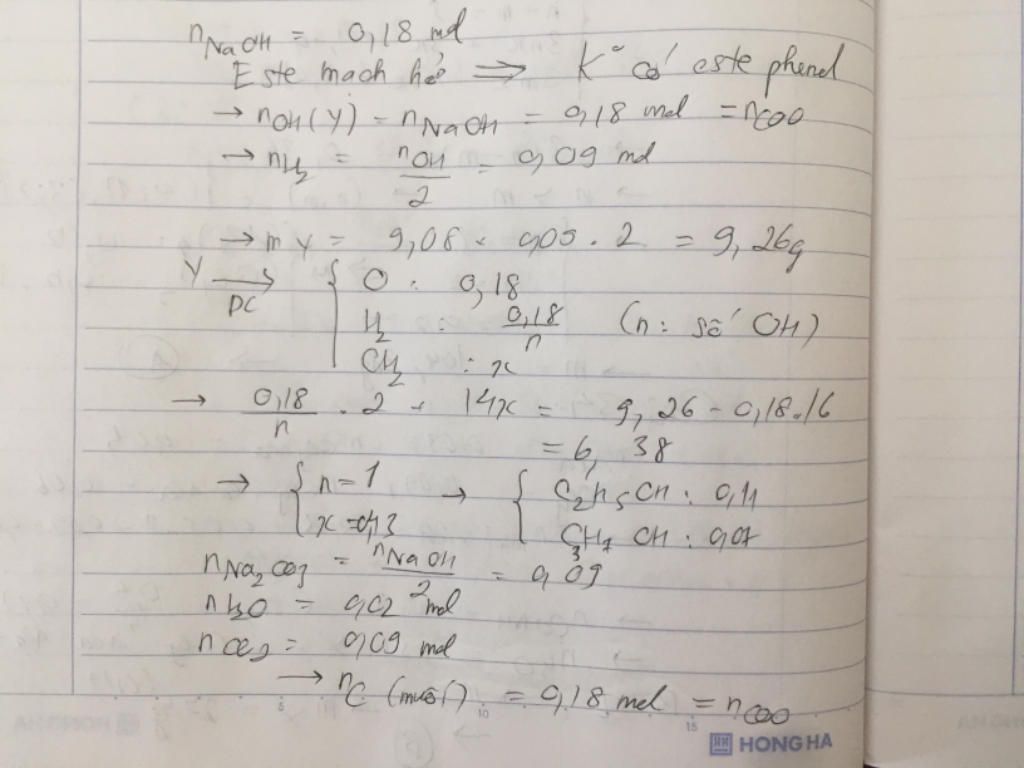 nNaOH = 0,18 mol
Este mạch hở ⟹ K° có este phenol
→ nOH(Y) = nNaOH = 0,18 mol = nCOO
→ nH2 = nOH/2 = 0,09 mol
→ mY = 9,08 + 0,09 . 2 = 9,26g
Y —ĐC→ { O : 0,18
H2 : 0,18/n (n: số OH)
CH2 : x
→ 0,18/n . 2 + 14x = 9,26 - 0,18.16
= 6,38
→ { n = 1 → { C2H5OH : 0,11
x = 0,43 CH3OH : 0,07
nNa2CO3 = nNaOH/2 = 0,09
nH2O = 0,02 mol
nCO2 = 0,09 mol
→ nC (muối) = 0,18 mol = nCOO
5 10 15
HONG HA